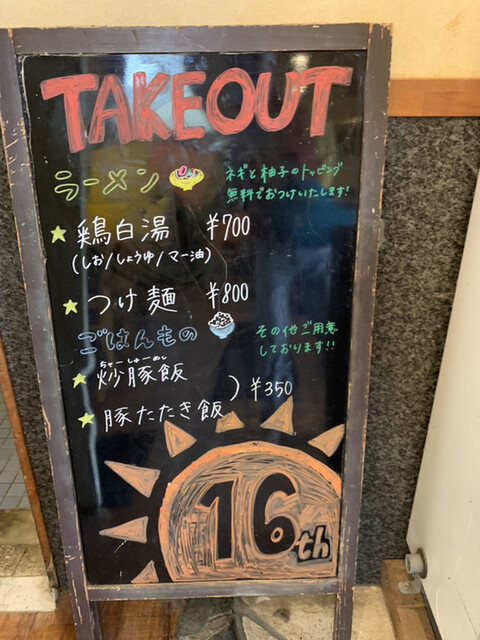 TAKEOUT
ラーメン
ネギと柚子のトッピング
無料でおつけいたします!
鶏白湯 ¥700
(しお/しょうゆ/マー油)
つけ麺 ¥800
ごはんもの
その他ご用意
しております!!
ちゃーしゅーめし
炒豚飯
豚たたき飯 ) ¥350
16th